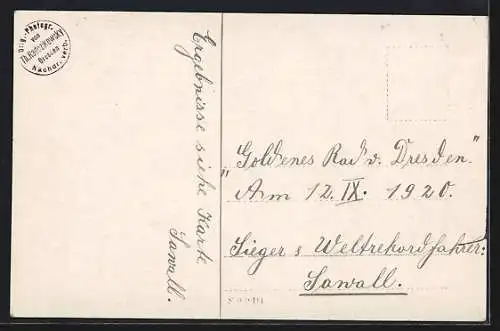 Orig.-Photogr.
von
Dresden
Nachdr. verb.
Ergebnisse siehe Karte
Sawall.
"Goldenes Rad v. Dresden"
Am 12. IX. 1920.
Sieger s Weltrekordfahrer:
Sawall.